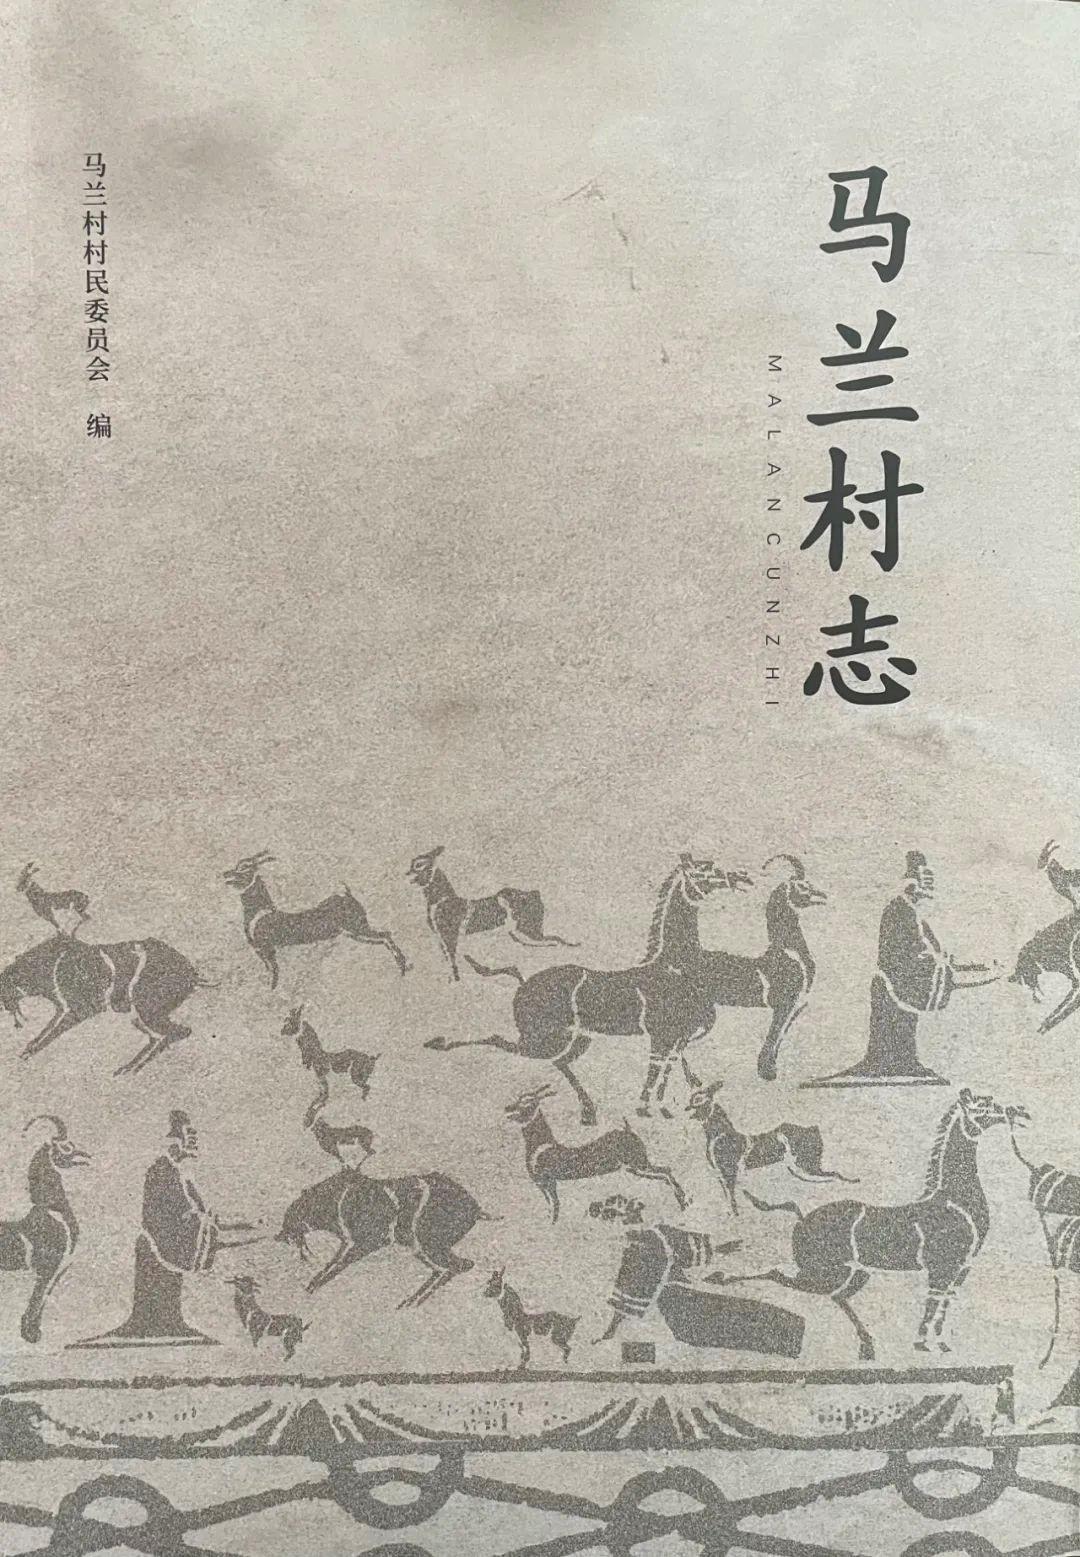 马兰村志
MALANCUNZHI
马兰村村民委员会 编